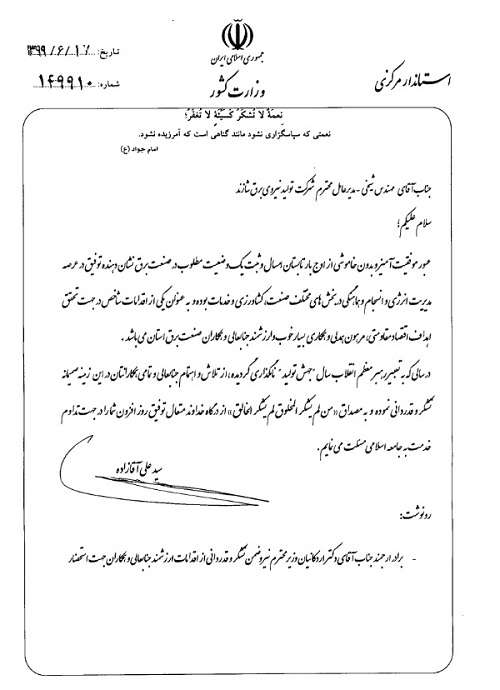 جمهوری اسلامی ایران
وزارت کشور
استاندار مرکزی
تاریخ: ۱۳۹۹/۶/۱۰
شماره: ۱۴۹۹۱۰
نِعمَةٌ لا تُشکَرُ کَسَیِّئَةٍ لا تُغفَرُ؛
نعمتی که سپاسگزاری نشود مانند گناهی است که آمرزیده نشود.
امام جواد (ع)
جناب آقای مهندس شیخی - مدیرعامل محترم شرکت تولید نیروی برق شازند
سلام علیکم؛
عبور موفقیت آمیز و بدون خاموشی از اوج بار تابستان امسال و ثبت یک وضعیت مطلوب در صنعت برق نشان دهنده توفیق در عرصه
مدیریت انرژی و انسجام و هماهنگی در بخش های مختلف صنعت، کشاورزی و خدمات بوده و به عنوان یکی از اقدامات شاخص در جهت تحقق
اهداف اقتصاد مقاومتی، مرهون همدلی و همکاری بسیار خوب و ارزشمند جنابعالی و همکاران صنعت برق استان می باشد.
در سالی که به تعبیر رهبر معظم انقلاب سال "جهش تولید" نامگذاری گردیده، از تلاش و اهتمام جنابعالی و تمامی همکارانتان در این زمینه صمیمانه
تشکر و قدردانی نموده و به مصداق «من لم یشکر المخلوق لم یشکر الخالق» از درگاه خداوند متعال توفیق روز افزون شما را در جهت تداوم
خدمت به جامعه اسلامی مسئلت می نمایم.
سید علی آقازاده
رونوشت:
- برادر ارجمند جناب آقای دکتر اردکانیان وزیر محترم نیرو ضمن تشکر و قدردانی از اقدامات ارزشمند جنابعالی و همکاران جهت استحضار